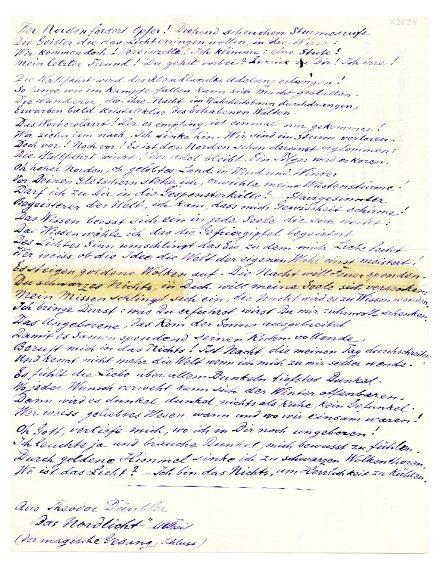 X2624
Der Norden fordert Opfer! Drohend scheuchen Sturmesrufe
Die Geister die das Licht erringen wollen, in die Wüste!
Wer kommt doch! Vereinzelte! Ich klimme: eine Stufe!
Mein letzter Freund! Du gehst vorbei? Zurück Dir! Ich irre!
Die Wallfahrt wird des Nordlandes Adelung erlangen!
So lange wir im Kampfe fallen kann sich Macht gestalten.
Die Wunderer, die ihre Nacht im durchdrangen,
Erwarben bald des Erhabenen Walten.
Das Wort erlaut! Der es empfing ist einmal nur gekommen!
Wir ziehn ihm nach. Ich sinke hin. Wir sind im Sturm verloren.
Doch vor! Noch vor! Es ist der Norden schon darinst erglommen:
Die Wallfahrt winkt, der Adel bleibt. Ein Sieger wird erkoren.
Oh hoher Norden, oh gelobtes Land in Wind und Winter
Von Deinen Gletschern stets ich, erwählte meine Wüstenstürme!
Darf ich zu dir in die
Begeisterer der Welt, ich kann, dass mich Gewissheit schirme!
Das Wissen beisst sich ein in jede Seele die sich
Das Wissen wähle ich, das die begeistert
Des Lichtes Sinn umschlingt das Eis, zu dem mich Liebe
Wer weiss, ob die Idee die Welt der eigenen Wahl einst meistert!
Es steigen goldene Wolken auf. Die Nacht will Feuer spenden.
Du schwarzes Nichts, in Dich will meine Seele sich versenken,
Mein Wissen schlingt sich ein, die Nacht wird es zu Wissen wenden,
Ich bringe Durst: was Du erfährst wirst Du mir ruhmvoll schenken,
Das Angeborene, das Korn der Sonne ausgebreitet
Damit es Samen spendend seinen Reden vollende.
Bereift mich in das Nichts! Ist Nacht die meinen Tag durchschreitet
Und kennt nicht mehr die Welt wenn ich mich zu mir selber wende.
Es fühlt die Liebe über allen Dunkeln tiefstes Dunkel.
Wo jeder Wunsch verweht kann sich der Winter offenbaren.
Dann wird es dunkel, dunkel, nichts als Liebe, kein Gefunkel!
Wer weiss, geliebtes Wesen wann und wo wir einsam waren!
Oh Gott, vertiefe mich, wo ich in Dir noch ungeboren!
Ich leuchte ja und brauche Dunkel, mich bewusst zu fühlen.
Durch goldene Himmel sinke ich zu schwarzen Wolkentoren,
Wo ist das Licht? - Ich bin das Nichts, um Herrlichkeit zu kühlen.
Aus Theodor Däubler
"Das Nordlicht"
(Der magische Gesang, Schluss)